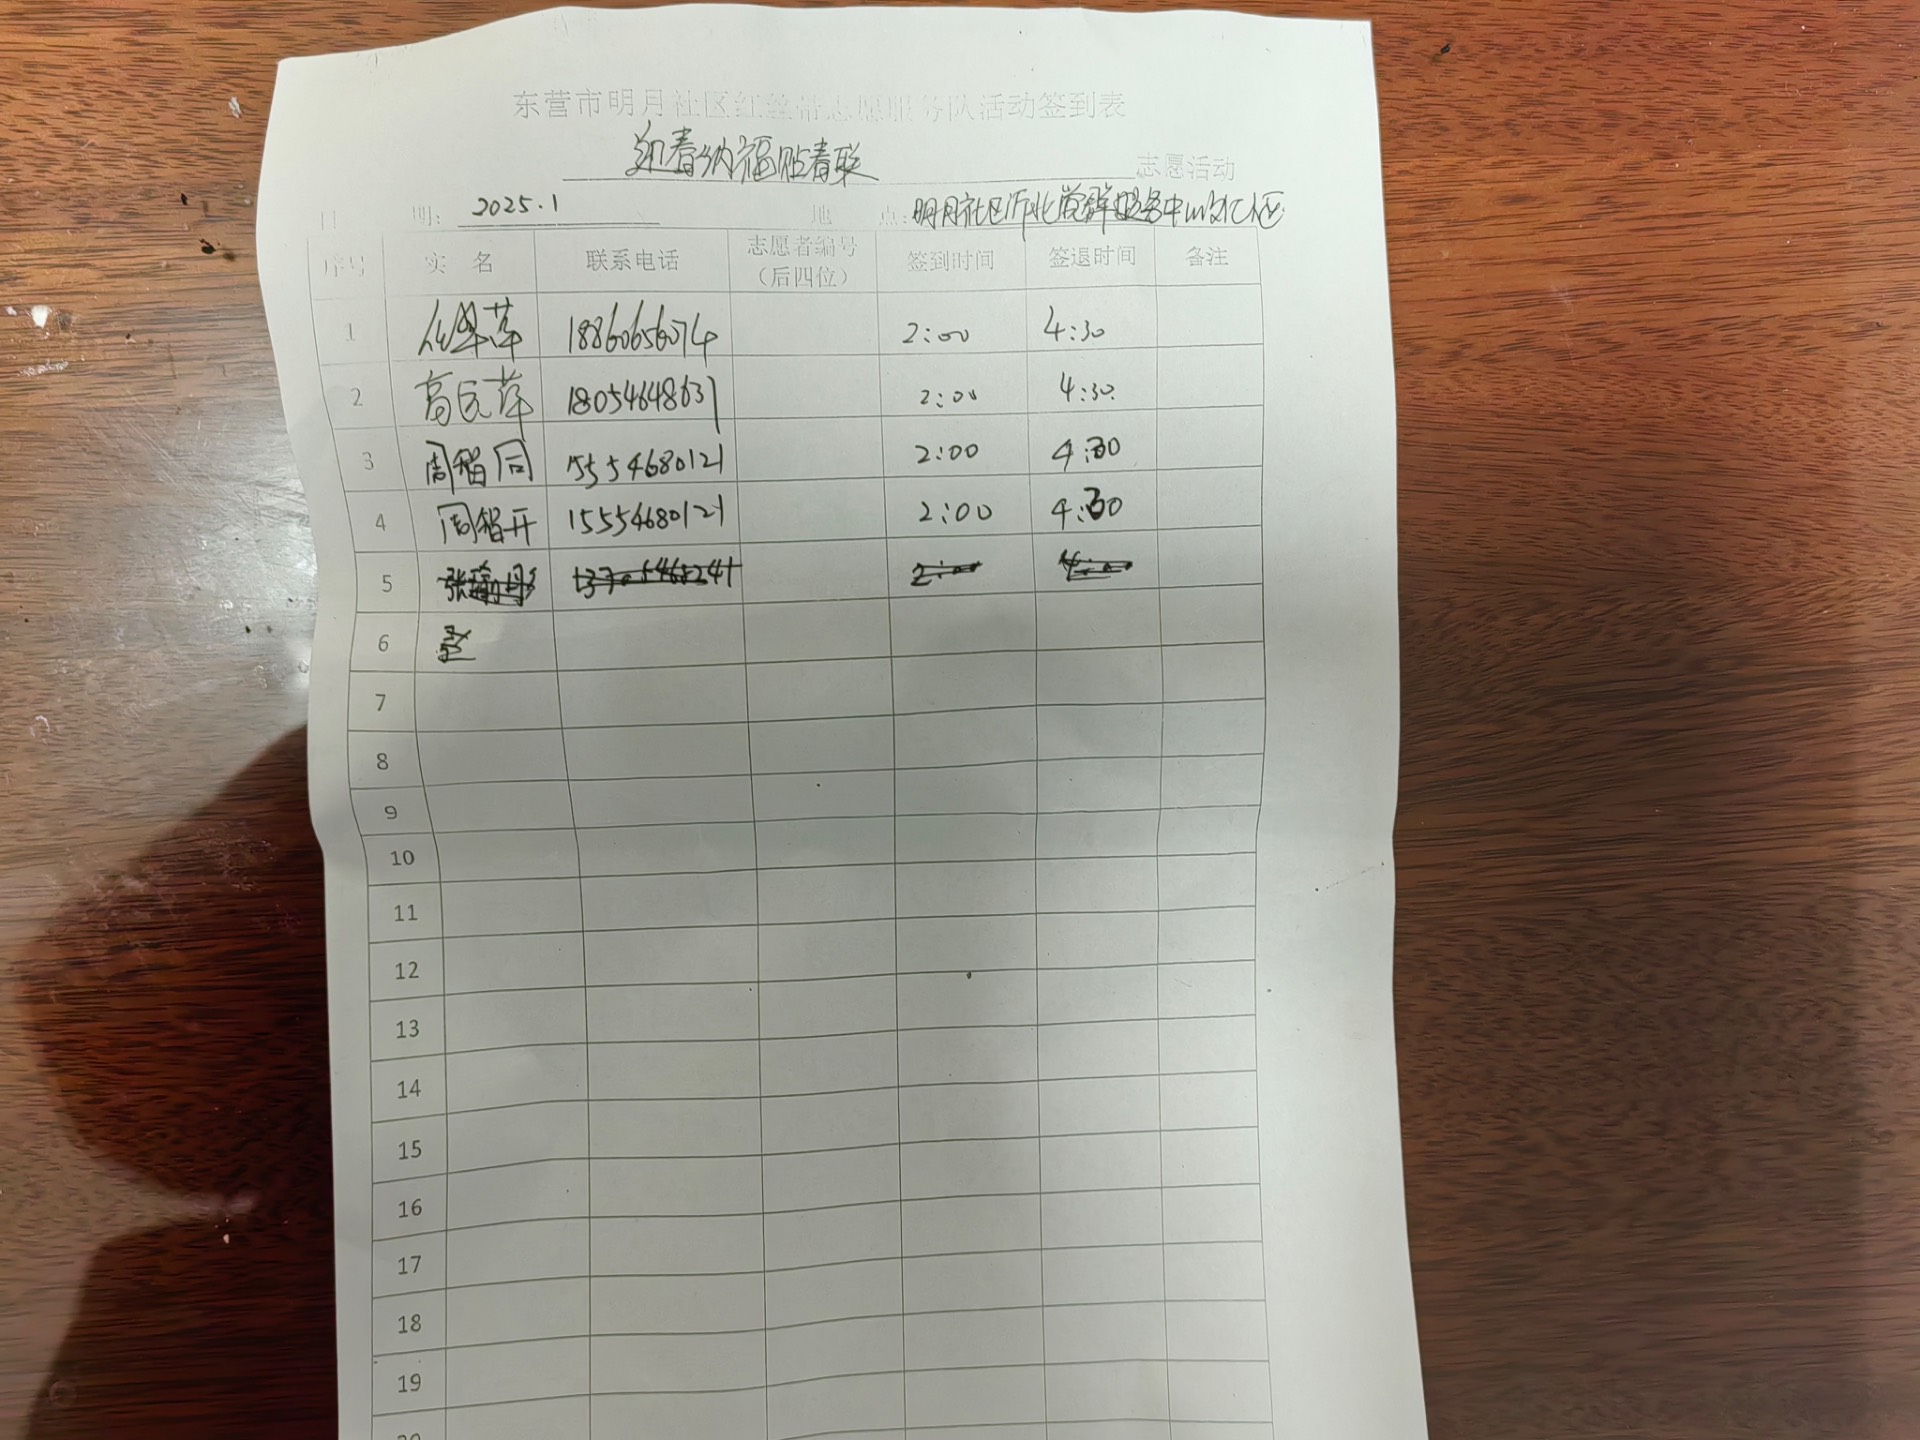 东营市明月社区红丝带志愿服务队活动签到表
迎春纳福贴春联 志愿活动
日 期: 2025.1 地 点: 明月社区沂北党群服务中心
序号 实 名 联系电话 志愿者编号（后四位） 签到时间 签退时间 备注
1 萍 18860656074 2:00 4:30
2 高 萍 18054648637 2:00 4:30
3 周智同 15554680121 2:00 4:30
4 周智开 15554680121 2:00 4:30
5 张
6
7
8
9
10
11
12
13
14
15
16
17
18
19
20